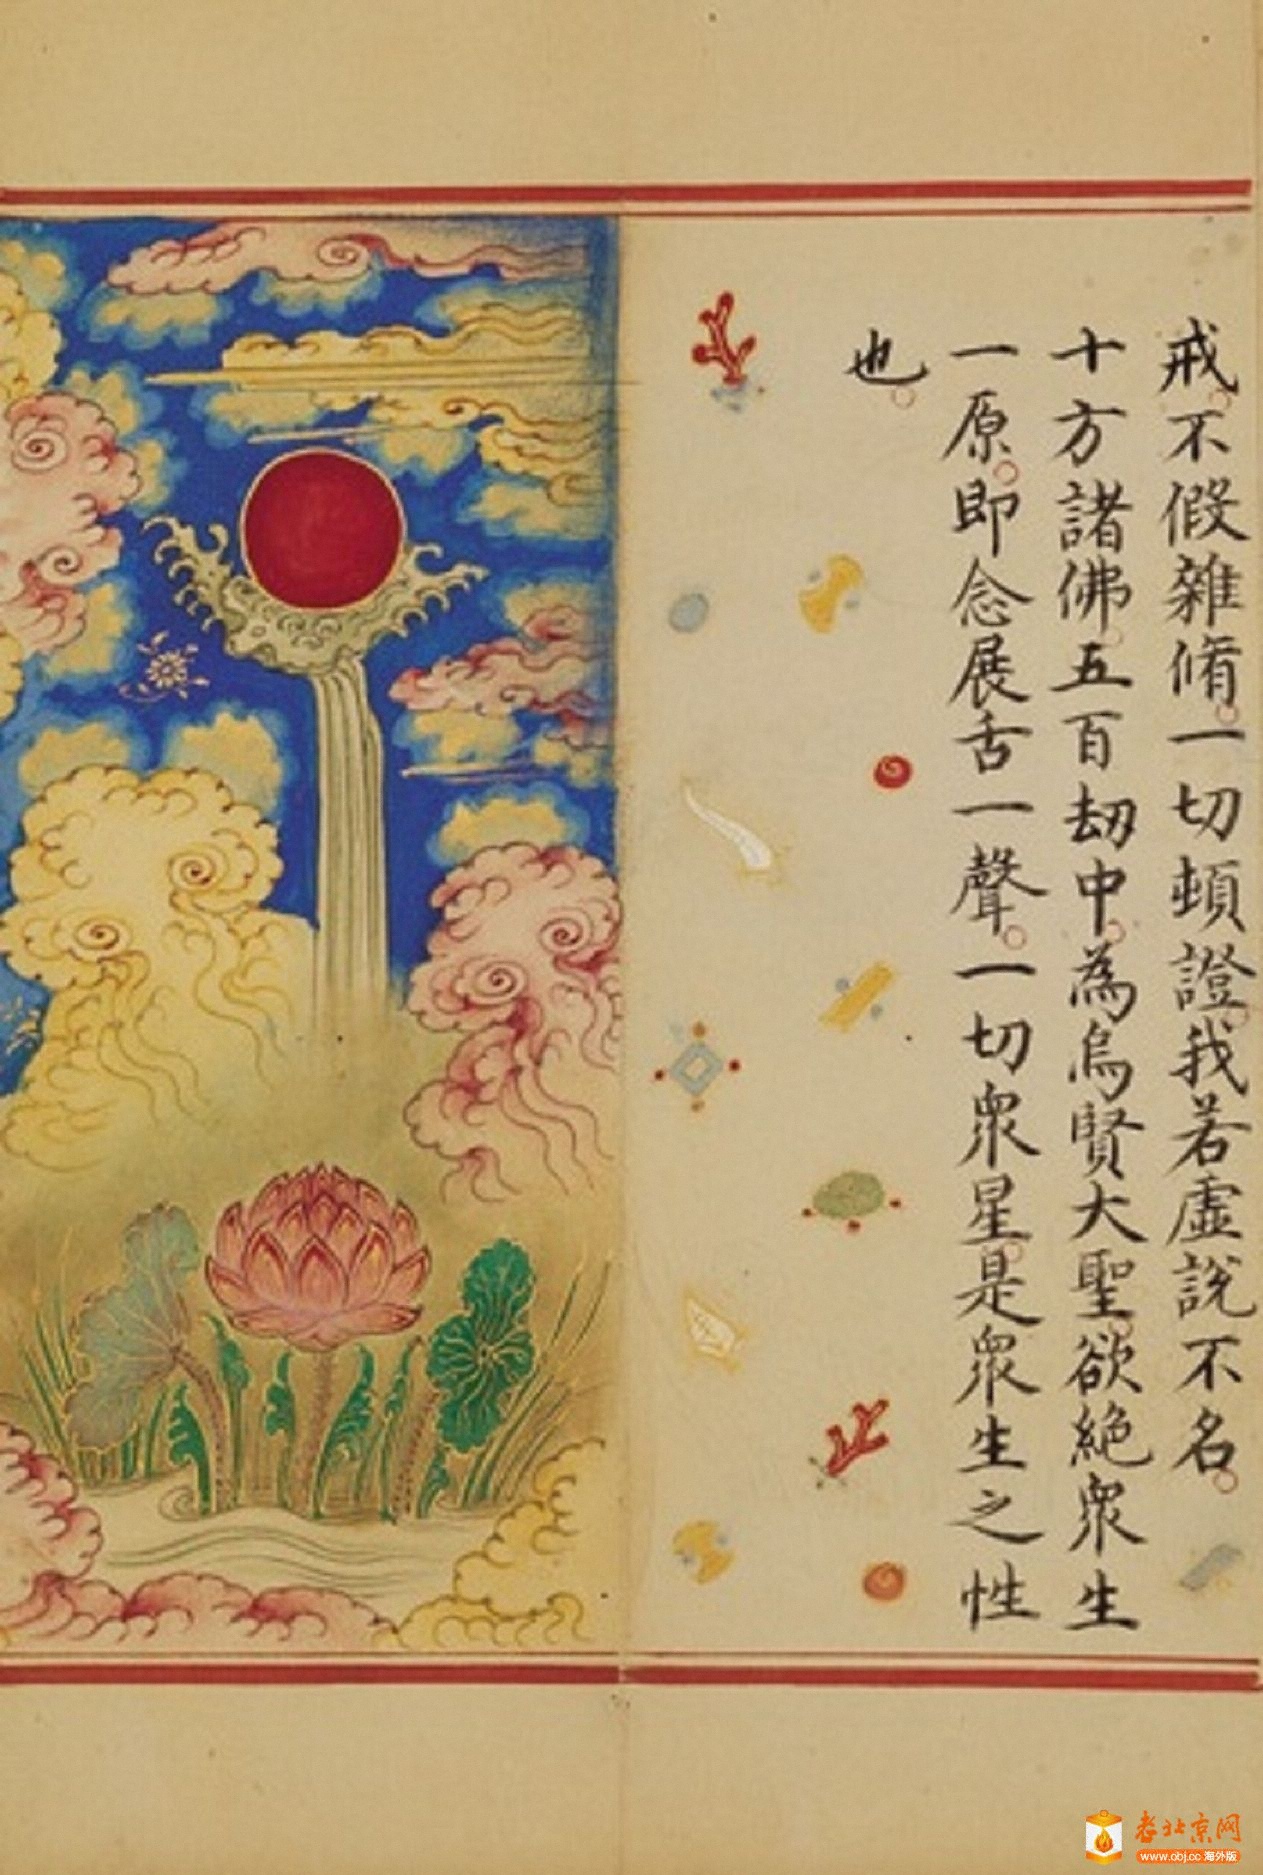 戒。不假雜脩。一切頓證。我若虛說不名。
十方諸佛。五百刼中。為烏賢大聖。欲絕眾生
一原。即念展舌一聲。一切眾星。是眾生之性
也。
老北京网
www.obj.cc 海外版